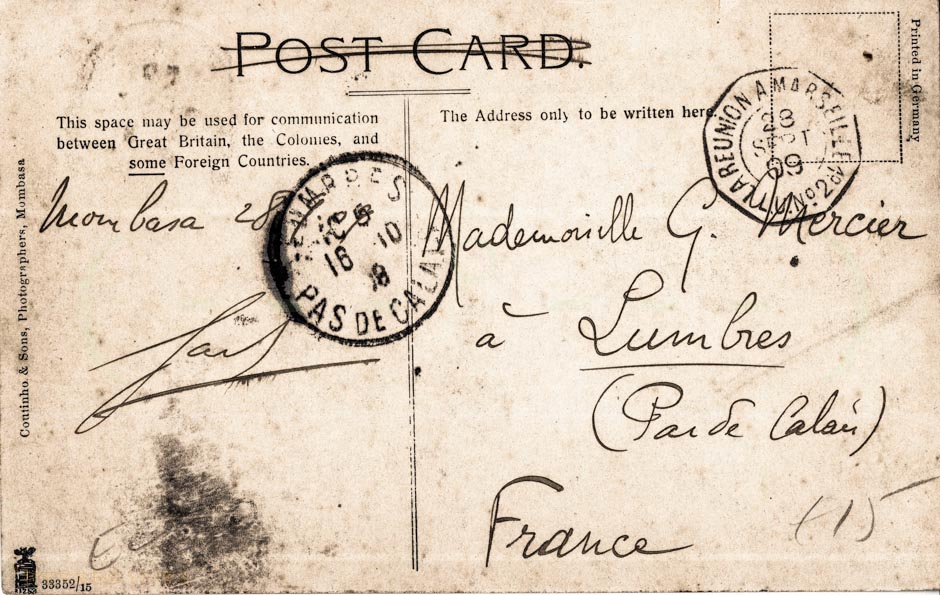 POST CARD.
This space may be used for communication
between Great Britain, the Colonies, and
some Foreign Countries.
The Address only to be written here.
Printed in Germany
LA REUNION A MARSEILLE
L.V. Nº 2
8
SEPT
09
LUMBRES
16 10
PAS DE CALAIS
Mombasa 28
Mademoiselle G. Mercier
à Lumbres
(Pas de Calais)
France
(15
Coutinho & Sons, Photographers, Mombasa
33352/15